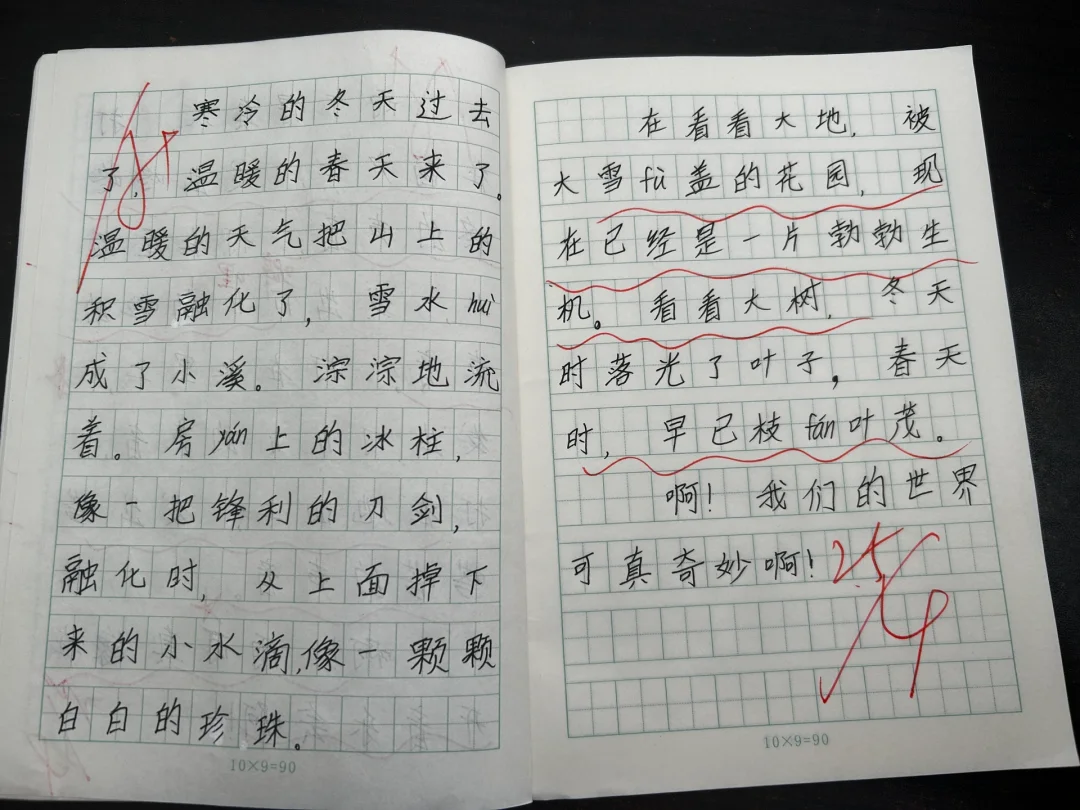 寒冷的冬天过去
了,温暖的春天来了。
温暖的天气把山上的
积雪融化了,雪水huì
成了小溪。淙淙地流
着。房yán上的冰柱,
像一把锋利的刀剑,
融化时,从上面掉下
来的小水滴,像一颗颗
白白的珍珠。
10×9=90
在看看大地,被
大雪fù盖的花园,现
在已经是一片勃勃生
机。看看大树,冬天
时落光了叶子,春天
时,早已枝fán叶茂。
啊!我们的世界
可真奇妙啊!
10×9=90